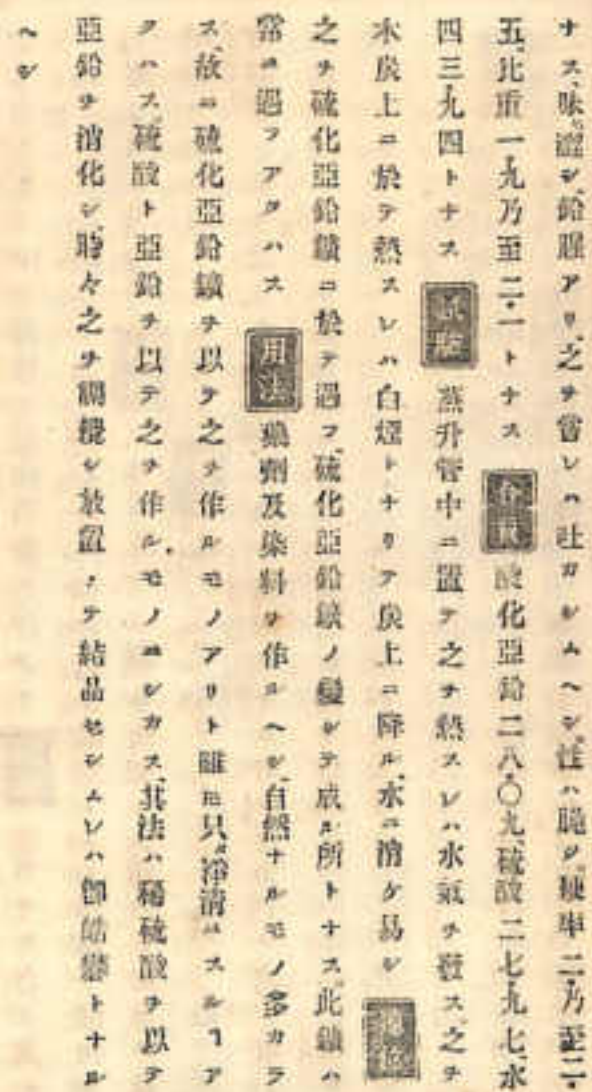 ナス、味澀シ、鉛腥アリ、之ヲ嘗レハ吐ガシムヘシ、性ハ脆シ、硬率二乃至二、
五、比重一、九乃至二・一トナス 合成 酸化亞鉛二八・〇九、硫酸二七、九七、水
四三、九四トナス 試驗 蒸升管中ニ置テ之ヲ熱スレハ水氣ヲ發ス、之ヲ
木炭上ニ於テ熱スレハ白煙トナリテ炭上ニ降ル、水ニ溶ケ易シ
之ヲ硫化亞鉛鑛ニ於テ遇フ、硫化亞鉛鑛ノ變シテ成ル所トナス、此鑛ハ
常ニ遇フアタハス 用法 藥劑及染料ヲ作ルヘシ、自然ナルモノ多カラ
ス、故ニ硫化亞鉛鑛ヲ以テ之ヲ作ルモノアリト雖モ只、淨清ニスルヿア
タハス、硫酸ト亞鉛ヲ以テ之ヲ作ル、モノニシカス、其法ハ稀硫酸ヲ以テ
亞鉛ヲ消化シ、時々之ヲ調攪シ放置シテ結晶セシムレハ卽皓礬トナル
ヘシ